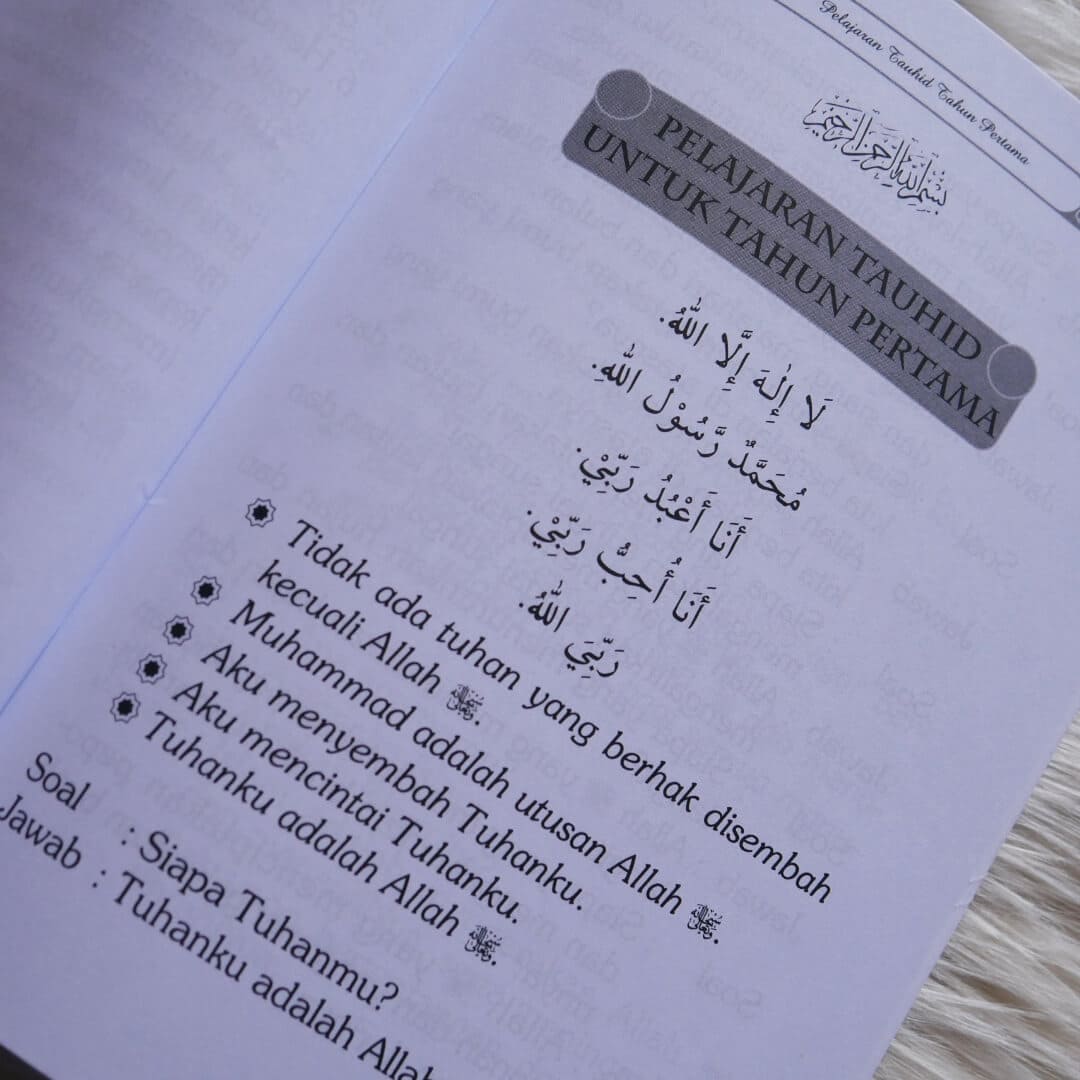 Pelajaran Tauhid Tahun Pertama
بِسْمِ اللَّهِ الرَّحْمَنِ الرَّحِيمِ
PELAJARAN TAUHID
UNTUK TAHUN PERTAMA
لَا إِلٰهَ إِلَّا اللّٰهُ.
مُحَمَّدٌ رَّسُوْلُ اللّٰهِ.
أَنَا أَعْبُدُ رَبِّيْ.
أَنَا أُحِبُّ رَبِّيْ.
رَبِّيَ اللّٰهُ.
Tidak ada tuhan yang berhak disembah
kecuali Allah ﷾.
Muhammad adalah utusan Allah ﷾.
Aku menyembah Tuhanku.
Aku mencintai Tuhanku.
Tuhanku adalah Allah ﷾.
Soal : Siapa Tuhanmu?
Jawab : Tuhanku adalah Allah